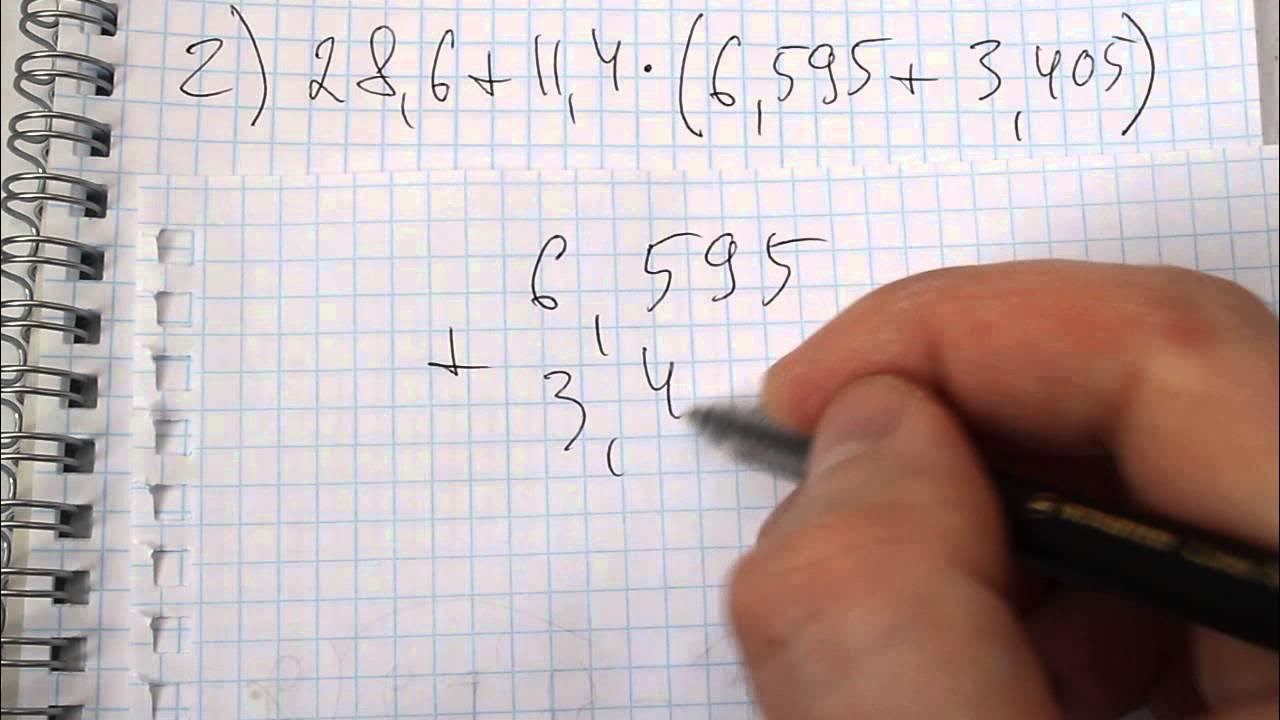 2) 28,6 + 11,4 · (6,595 + 3,405)
6,595
+ 3,4